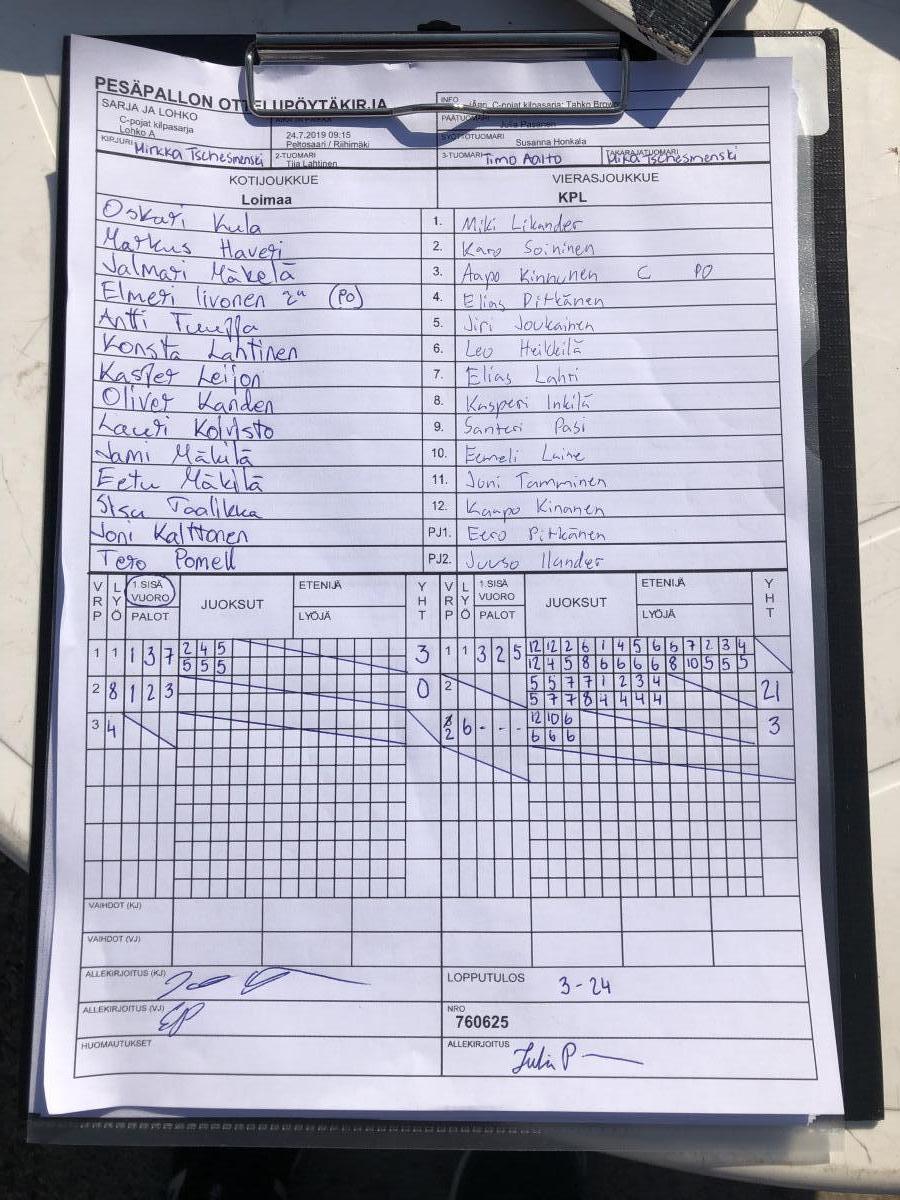 PESÄPALLON OTTELUPÖYTÄKIRJA
SARJA JA LOHKO
C-pojat kilpasarja
Lohko A
24.7.2019 09:15
Peltosaari / Riihimäki
INFO C-pojat kilpasarja: Tahko Brow
PÄÄTUOMARI
Julia Pasanen
SYÖTTÖTUOMARI
Susanna Honkala
KIRJURI Mirkka Tschesmenski
2-TUOMARI
Tiia Lahtinen
3-TUOMARI Timo Aalto
TAKARAJATUOMARI Mika Tschesmenski
KOTIJOUKKUE VIERASJOUKKUE
Loimaa KPL
Oskari Kula 1. Miki Likander
Markus Haveri 2. Karo Soininen
Jalmari Mäkelä 3. Aapo Kinnunen C PO
Elmeri Iivonen (PO) 4. Elias Pitkänen
Antti 5. Jiri Joukainen
Konsta Lahtinen 6. Leo Heikkilä
Kasper Leijon 7. Elias Lahti
Oliver Kanden 8. Kasperi Inkilä
Lauri Koivisto 9. Santeri Pasi
Jami Mäkilä 10. Eemeli Laine
Eetu Mäkilä 11. Joni Tamminen
Sisu Taalikka 12. Kaapo Kinanen
Joni Kalttonen PJ1. Eero Pitkänen
Tero Pomell PJ2. Juuso Ilander
VRP LYÖ 1.SISÄ VUORO PALOT JUOKSUT ETENIJÄ LYÖJÄ YHT VRP LYÖ 1.SISÄ VUORO PALOT JUOKSUT ETENIJÄ LYÖJÄ YHT
1 1 1 3 7 2 4 5 3 1 1 3 2 5 12 12 2 6 1 4 5 6 6 7 2 3 4
5 5 5 12 4 5 8 6 6 6 6 8 10 5 5 5
2 8 1 2 3 0 2 5 5 7 7 1 2 3 4 21
5 7 7 8 4 4 4 4
3 4 2 6 - - - 12 10 6 3
6 6 6
VAIHDOT (KJ)
VAIHDOT (VJ)
ALLEKIRJOITUS (KJ) LOPPUTULOS 3-24
ALLEKIRJOITUS (VJ) EP NRO
760625
HUOMAUTUKSET ALLEKIRJOITUS Julia P